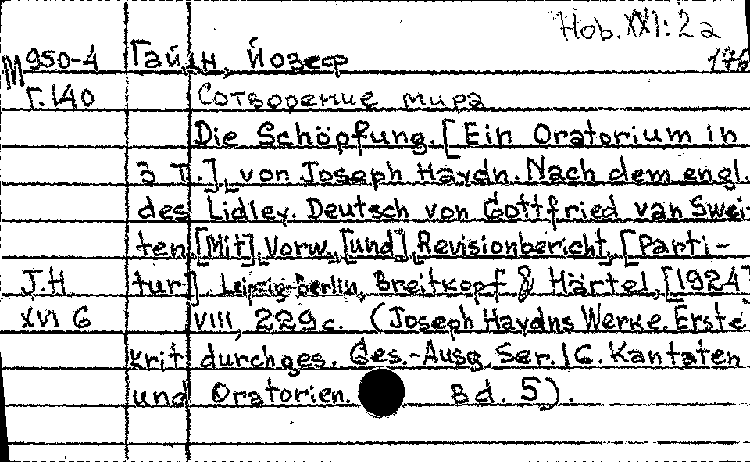 Hob. XXI: 2a
М 950-4 Гайдн, Йозеф
Г.140 Сотворение мира
Die Schöpfung. [Ein Oratorium in
3 T.], von Joseph Haydn. Nach dem engl.
des Lidley. Deutsch von Gottfried van Swei-
ten [Mit] Vorw. [und] Revisionbericht, [Parti-
J.H tur]. Leipzig-Berlin, Breitkopf & Härtel, [1924]
XVI 6 VIII, 229 с. (Joseph Haydns Werke. Erste
krit durchges. Ges.-Ausg. Ser. 16. Kantaten
und Oratorien. Bd. 5).